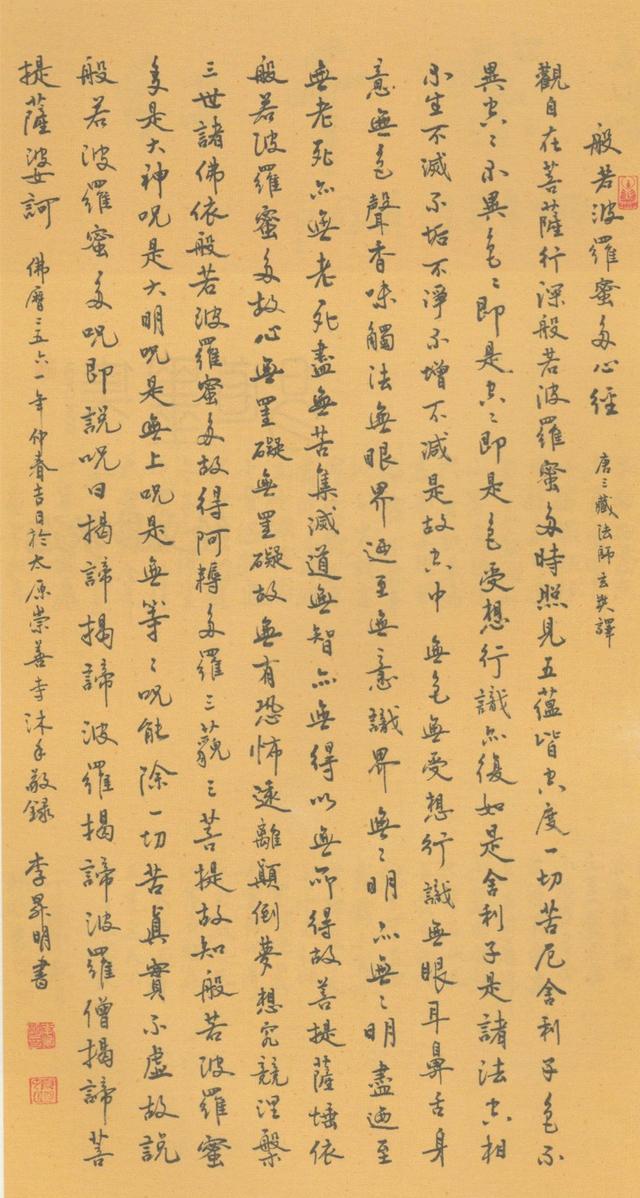 般若波羅蜜多心經 唐三藏法師玄奘譯
觀自在菩薩行深般若波羅蜜多時照見五蘊皆空度一切苦厄舍利子色不
異空〻不異色〻即是空〻即是色受想行識亦復如是舍利子是諸法空相
不生不滅不垢不淨不增不減是故空中無色無受想行識無眼耳鼻舌身
意無色聲香味觸法無眼界迺至無意識界無〻明亦無〻明盡迺至
無老死亦無老死盡無苦集滅道無智亦無得以無所得故菩提薩埵依
般若波羅蜜多故心無罣礙無罣礙故無有恐怖遠離顛倒夢想究竟涅槃
三世諸佛依般若波羅蜜多故得阿耨多羅三藐三菩提故知般若波羅蜜
多是大神咒是大明咒是無上咒是無等〻咒能除一切苦真實不虛故說
般若波羅蜜多咒即說咒曰揭諦揭諦波羅揭諦波羅僧揭諦菩
提薩婆訶 佛曆二五六一年仲春吉日於太原崇善寺沐手敬錄 李昇明書